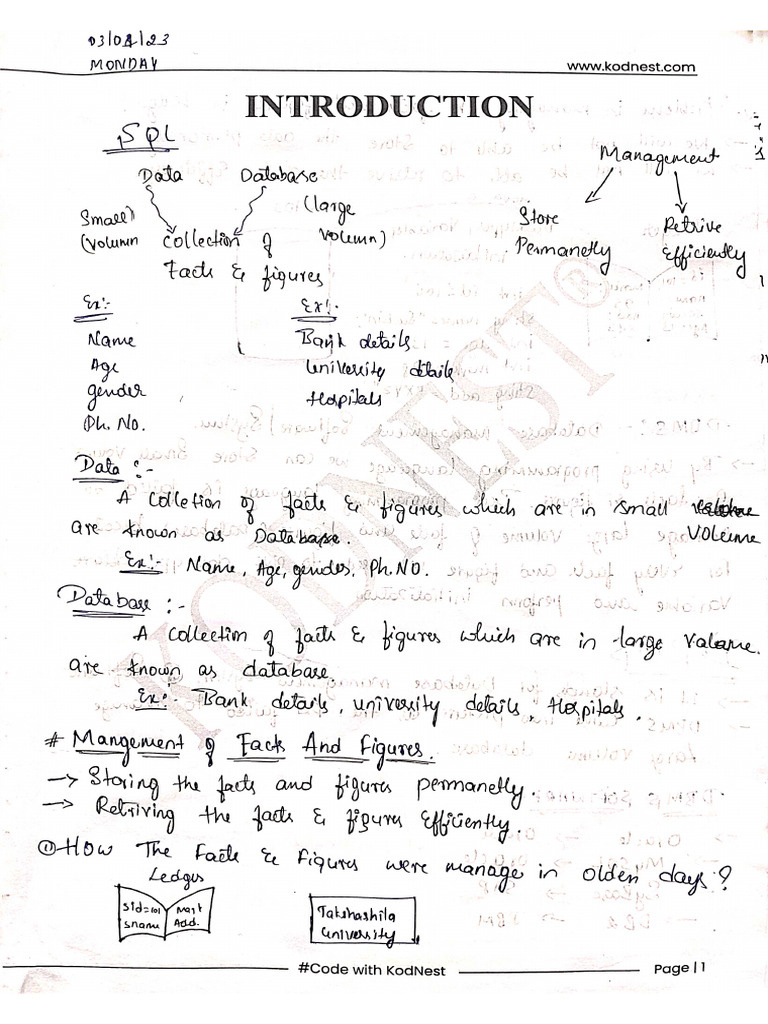 03/04/23
MONDAY
www.kodnest.com
INTRODUCTION
SQL
Data Database
Management
Small) (large
(Volumn collection of Volumn)
Facts & figures
Store Retrive
Permanetly Efficiently
Ex:- Ex:-
Name Bank details
Age University details
gender Hospitals
Ph. No.
Data :-
A Colletion of facts & figures which are in small
Volume
are known as Database.
Ex:- Name, Age, gender, Ph.NO.
Database :-
A collection of facts & figures which are in large Valume.
are known as database.
Ex:- Bank details, university details, Hospitals.
# Mangement of Facts And Figures.
→ Storing the facts and figures permanetly.
→ Retriving the facts & figures efficiently.
① How The Facts & Figures were manage in olden days?
Ledgus
Sid=101 Mart
sname Add.
Takshashila
University
KODNEST®
#Code with KodNest
Page | 1